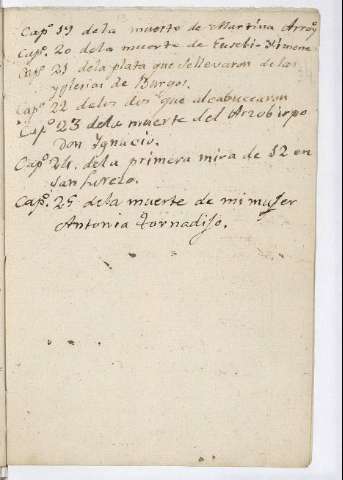 Capº 19 dela muerte de Martina Arroy
Capº 20 dela muerte de Eusebi Ximene
Capº 21 dela plata que sellevaron delas
yglesias de Burgos.
Capº 22 delos dos que alcabucearon
Capº 23 dela muerte del Arzobispo
Don Ignacio.
Capº 24. dela primera mira de 12 en
San Lorezo.
Capº. 25 dela muerte de mi mujer
Antonia Tornadijo.